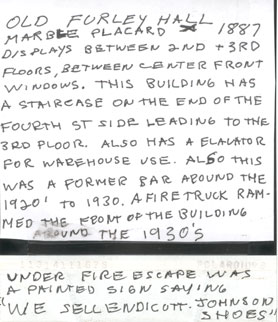 OLD FURLEY HALL
MARBLE PLACARD 1887
DISPLAYS BETWEEN 2ND + 3RD
FLOORS, BETWEEN CENTER FRONT
WINDOWS. THIS BUILDING HAS
A STAIRCASE ON THE END OF THE
FOURTH ST SIDE LEADING TO THE
3RD FLOOR. ALSO HAS A ELAVATOR
FOR WAREHOUSE USE. ALSO THIS
WAS A FORMER BAR AROUND THE
1920' TO 1930. A FIRETRUCK RAM-
MED THE FRONT OF THE BUILDING
AROUND THE 1930'S
UNDER FIRE ESCAPE WAS
A PAINTED SIGN SAYING
"WE SELL ENDICOTT-JOHNSON
SHOES"